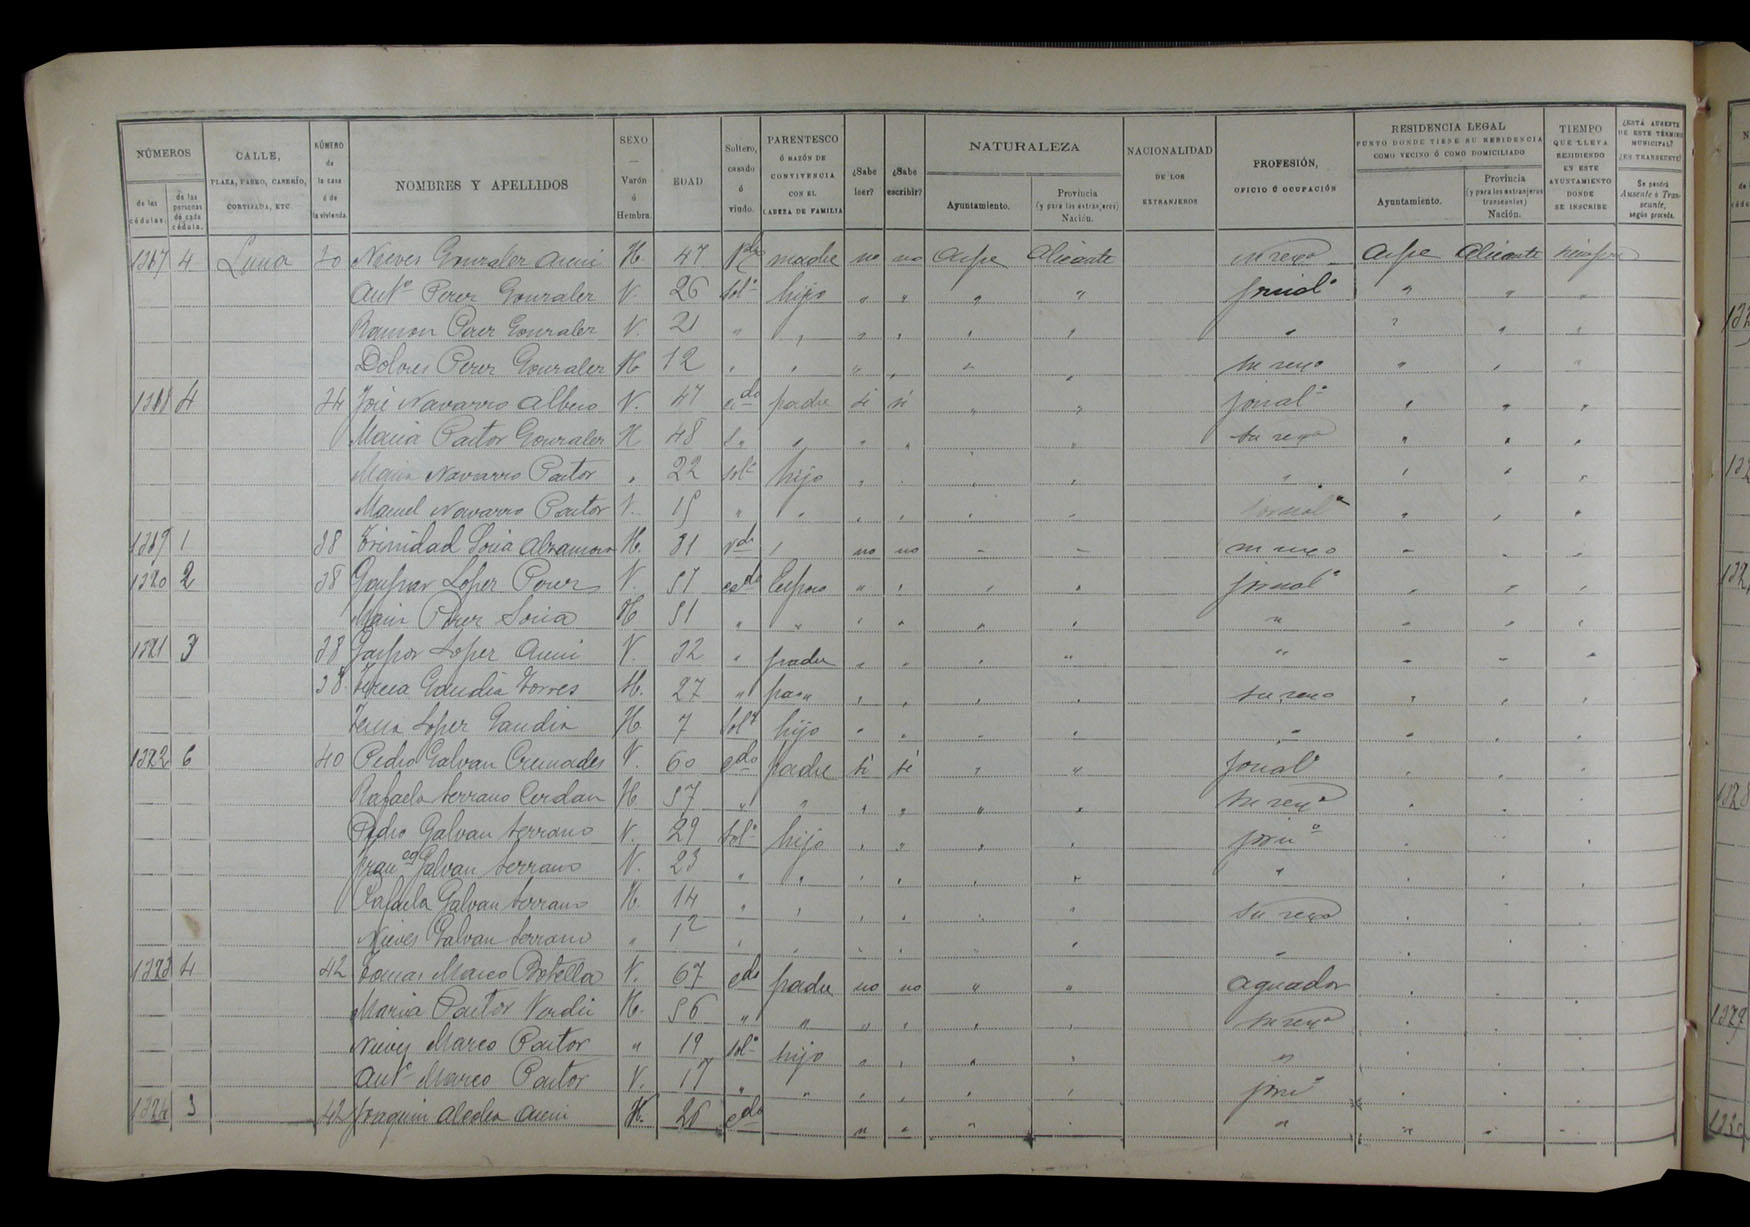 NÚMEROS | CALLE, PLAZA, PASEO, CASERÍO, CORTIJADA, ETC. | NÚMERO de la casa ó de la vivienda. | NOMBRES Y APELLIDOS | SEXO — Varón ó Hembra. | EDAD | Soltero, casado ó viudo. | PARENTESCO Ó RAZÓN DE CONVIVENCIA CON EL CABEZA DE FAMILIA | ¿Sabe leer? | ¿Sabe escribir? | NATURALEZA | NACIONALIDAD DE LOS EXTRANJEROS | PROFESIÓN, OFICIO Ú OCUPACIÓN | RESIDENCIA LEGAL PUNTO DONDE TIENE SU RESIDENCIA COMO VECINO Ó COMO DOMICILIADO | TIEMPO QUE LLEVA RESIDIENDO EN ESTE AYUNTAMIENTO DONDE SE INSCRIBE | ¿ESTÁ AUSENTE DE ESTE TÉRMINO MUNICIPAL? ¿ES TRANSEUNTE?
de las cédulas. | de las personas de cada cédula. | Ayuntamiento. | Provincia (y para los extranjeros) Nación. | Ayuntamiento. | Provincia (y para los extranjeros transeuntes) Nación. | Se pondrá Ausente ó Transeunte, según proceda.
1317 4 Luna 30 Nieves Gonzalez H. 47 madre no no Aspe Alicante su sexo Aspe Alicante siempre
Antº Perez Gonzalez V. 26 solº hijo " " " " jornalº " " "
Ramon Perez Gonzalez V. 21 " " " " " " " " " "
Dolores Perez Gonzalez H 12 " " " " " " su sexo " " "
1318 4 34 José Navarro Albero V. 47 cdo padre si si " " jornalº " " "
Maria Pastor Gonzalez H 48 " " " " " su sexo " " "
Maria Navarro Pastor " 22 solª hijo " " " " " " " "
Manuel Navarro Pastor V. 15 " " " " " " jornalº " " "
1319 1 38 Trinidad Soria H. 81 vda no no " " su sexo " " "
1320 2 38 Gaspar Lopez Perez V. 51 cado Esposo " " " " jornalº " " "
Maria Perez Soria H 51 " " " " " " " " " "
1321 3 38 Gaspar Lopez V. 32 " padre " " " " " " " "
38 Teresa Gandia Torres H. 27 " " " " " " su sexo " " "
Teresa Lopez Gandia H 7 solª hijo " " " " " " " "
1322 6 40 Pedro Galvan Cremades V. 60 cdo padre si si " " jornalº " " "
Rafaela Serrano Cerdan H. 57 " " " " " " su sexo " " "
Pedro Galvan Serrano V. 29 solº hijo " " " " jornº " " "
Franco Galvan Serrano V. 23 " " " " " " " " " "
Rafaela Galvan Serrano H. 14 " " " " " " su sexo " " "
Nieves Galvan Serrano " 12 " " " " " " " " " "
1323 4 42 Tomas Marco Botella V. 67 cdo padre no no " " aguador " " "
Maria Pastor Verdú H. 56 " " " " " " su sexo " " "
Nieves Marco Pastor " 19 solª hijo " " " " " " " "
Antº Marco Pastor V. 17 " " " " " " jornº " " "
1324 3 42 Joaquin H. 26 cdo " " " " " " " "